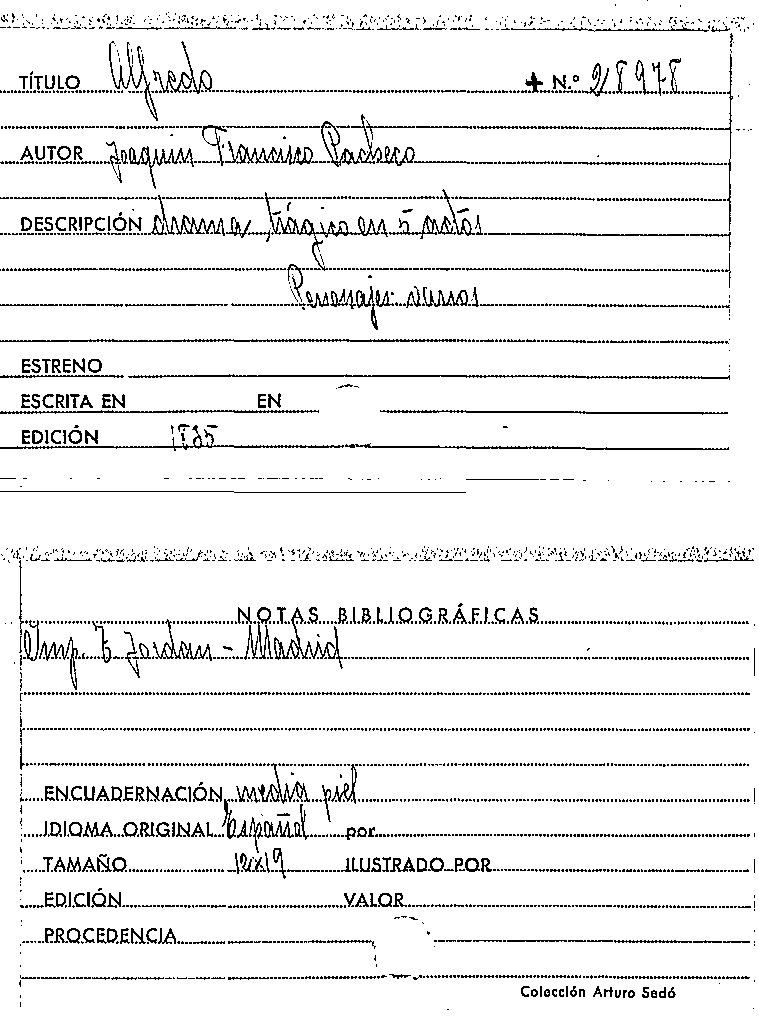 TÍTULO Alfredo + N.º 28978
AUTOR Joaquin Francisco Pacheco
DESCRIPCIÓN drama trágico en 5 actos
Personajes varios
ESTRENO
ESCRITA EN EN
EDICIÓN 1835
NOTAS BIBLIOGRÁFICAS
Imp. T. Jordan - Madrid
ENCUADERNACIÓN media piel
IDIOMA ORIGINAL Español por
TAMAÑO 12x19 ILUSTRADO POR
EDICIÓN VALOR
PROCEDENCIA
Colección Arturo Sedó